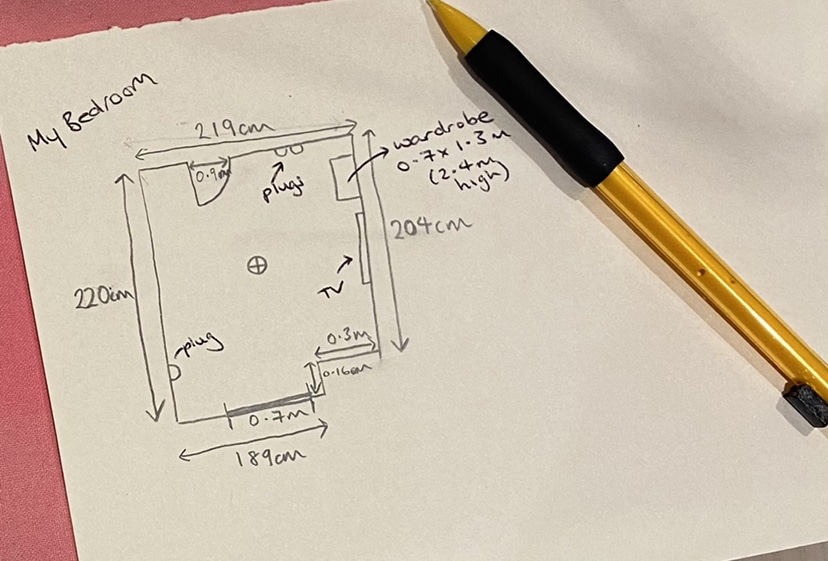 My Bedroom
219cm
wardrobe
0.7 x 1.3m
(2.4m
high)
0.9m
plugs
204cm
220cm
TV
plug
0.3m
0.16cm
0.7m
189cm